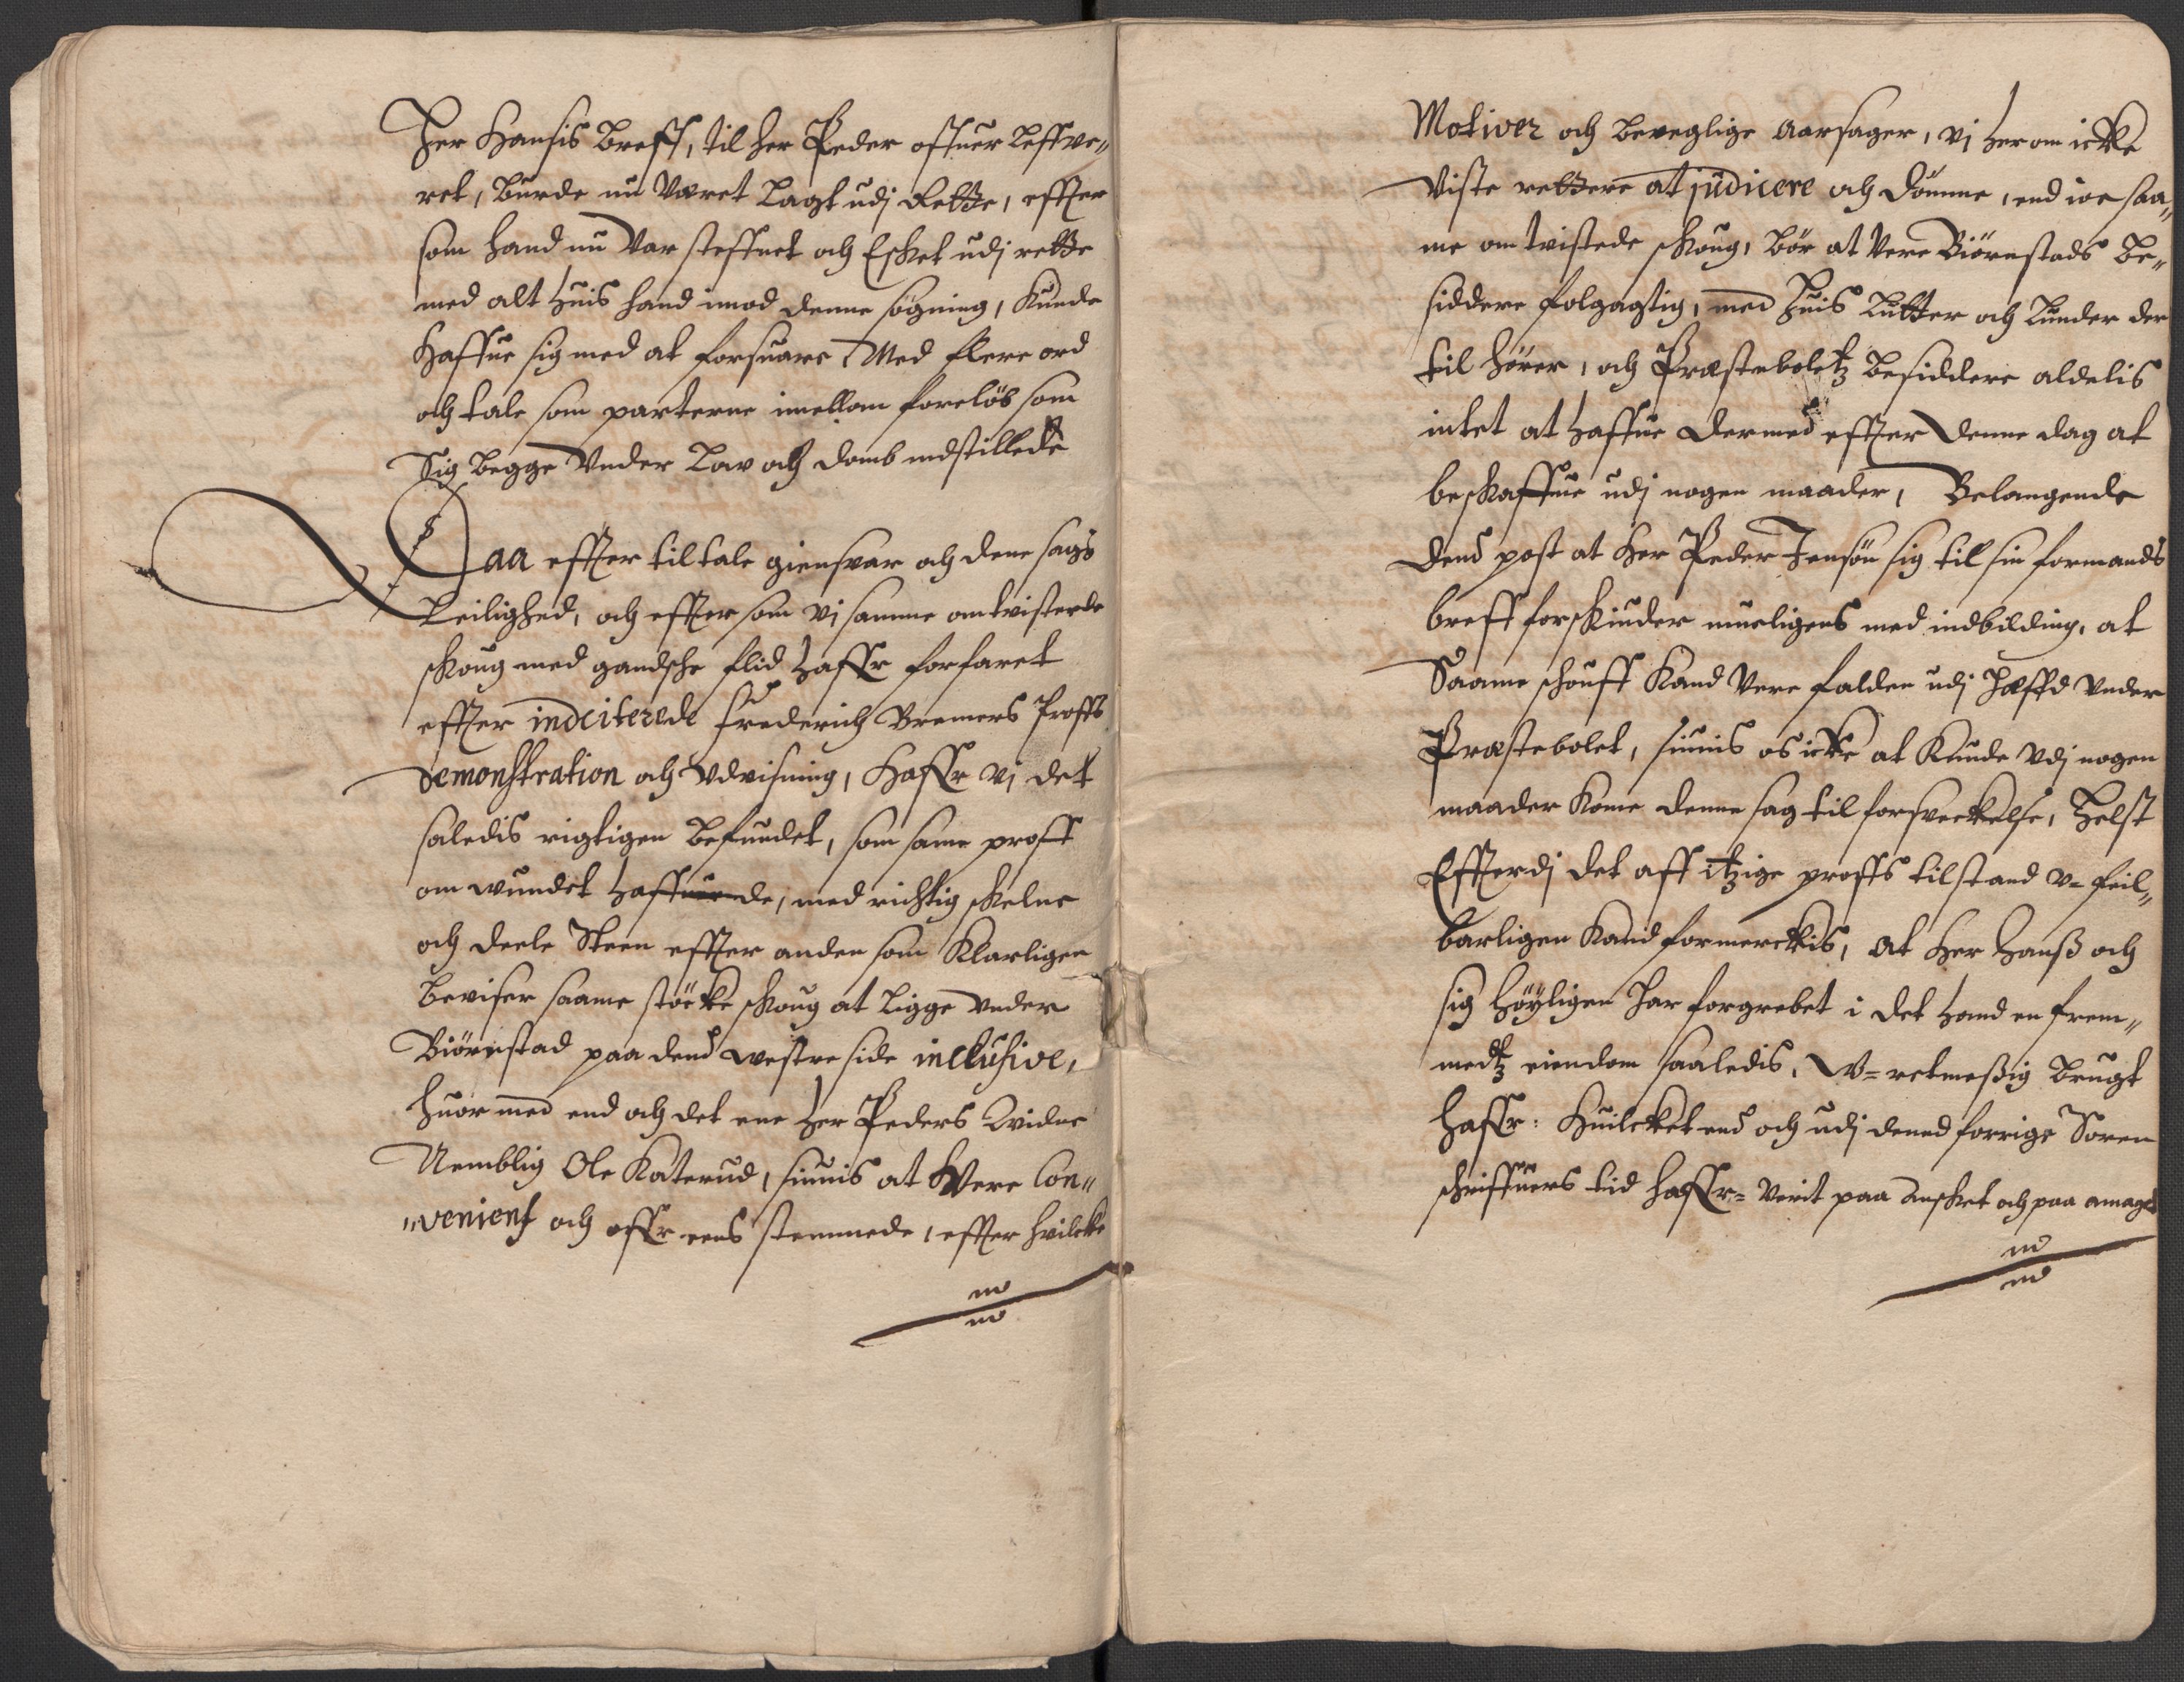 Her Hansis Breff, til her Peder offuer leffve„
ret, burde nu Været Lagt udj Rette, effter
som hand nu Var steffnet och Esket udj rette
med alt huis hand imod denne søgning, Kunde
Haffue sig med at forsuare Med flere ord
och tale som parterne imellom foreløb som
Sig begge Vnder Low och domb indstillede
Daa effter tiltale giensvar och dene sags
Leilighed, och effter som vj samme omtvisterde
skoug med gandsche flid haffr forfaret
effter indciterede Frederich Bremers Proffs
demonstration och Vdvisning, Haffr vj det
saledis rigtigen Befundet, som same proff
om wundet haffuerde, med richtig skelne
och deele Steen effter anden som Klarligen
Beviser saame støcke skoug at Ligge vnder
Biørnstad paa dend westre side inclusive,
huor med end och det ene her Peders Vidne
Nemblig Ole Katerud, siunis at Vere Con„
„venient och offr eens stemmede, effter hvilcke
Motiver och beveglige Aarsager, vj herom icke
Viste rettere at judicere och Dømme, end ioe saa„
me omtvistede skoug, bør at Vere Biørnstads Be„
siddere følgagtig, med huis Lutter och Lunder der
til hører, och Præstebolitz besiddere aldelis
intet at haffue dermed effter denne dag at
beskaffue udj nogen maader, Belangende
dend post at Her Peder Jensøn sig til sin formands
breff forskiuder mueligens med indbilding, at
Saame schouff Kand Vere falden udj Hæffd vnder
Præstebolet, siunis os icke at Kunde Vdj nogen
maader Kome denne sag til forsveckelse, helst
Effterdj det aff itzige proffs tilstand v= feil„
barligen Kand formerckis, At Her Hanß och
sig høyligen har forgrebet i det hand en frem„
medtz eiendom saaledis, W= retmeßig brugt
haffr: Huilcket end och udj dend forrige Soren
schriffuers tid haffr= Verit paa ansket och paa anaget